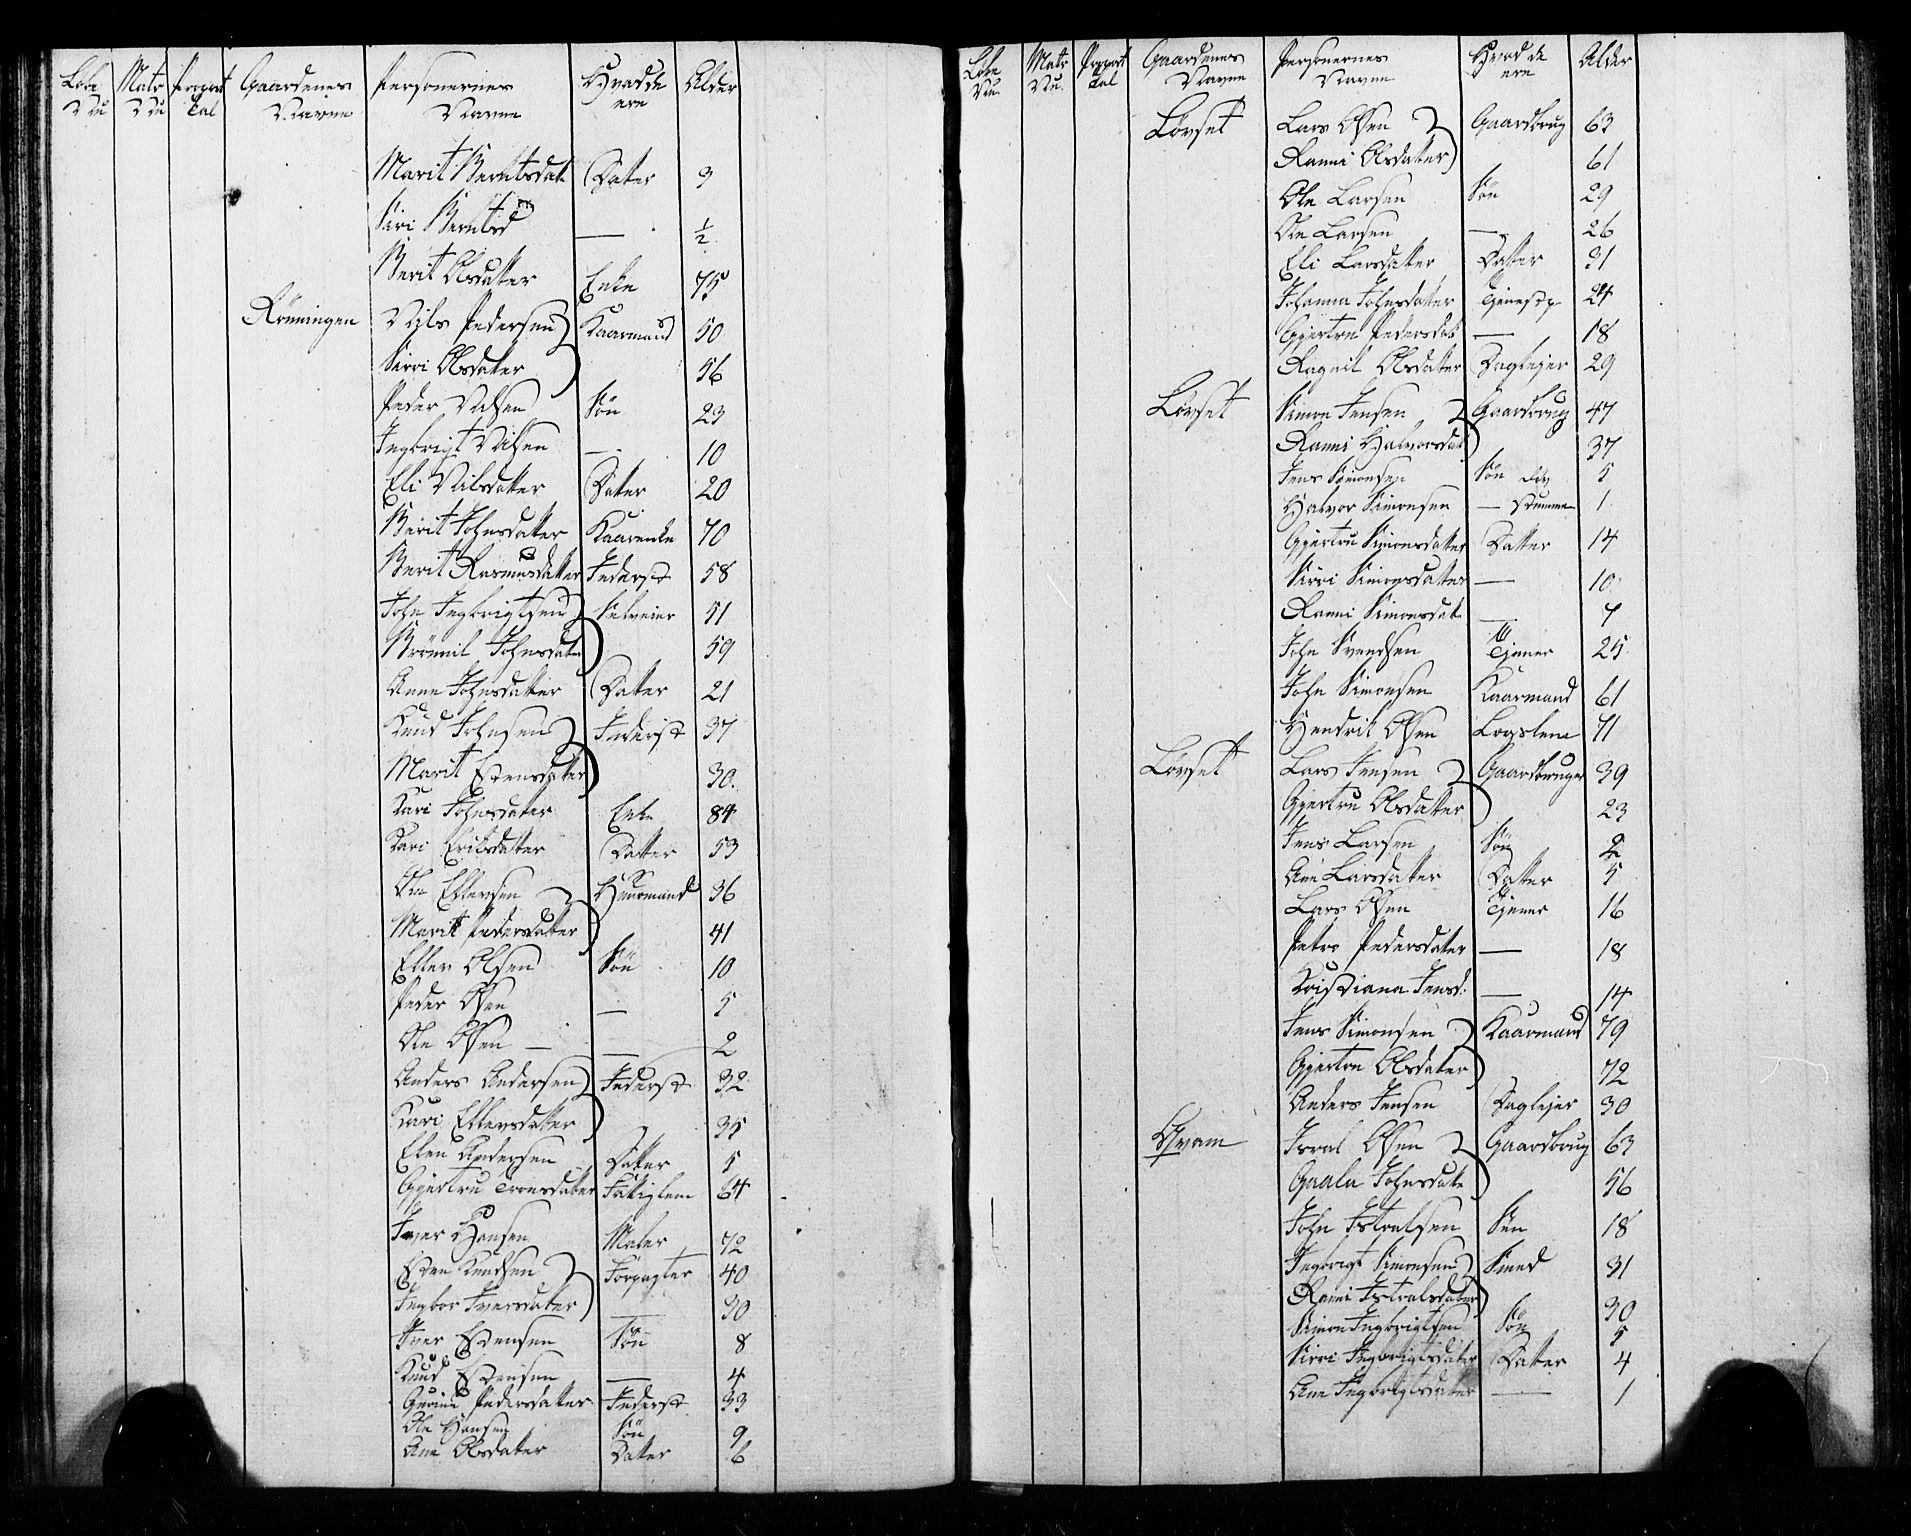 Løbe Nu Matr Nu Proport Tal Gaardenes Navne Personernes Navne Hvad de ere Alder
Marit Berntsdat. Datter 3
Siri Berntsd — ½
Berit Olsdatter Enke 75
Rönningen Nils Pedersen Kaarmand 50
Sirri Olsdatter 56
Peder Nilsen Sön 23
Ingbrigt Nilsen — 10
Eli Nilsdatter Datter 20
Berit Johnsdatter Kaarenke 70
Berit Rasmusdatter Inderst 58
John Ingbrigtsen Selveier 51
Brönnil Johnsdatter 59
Anne Johnsdatter Datter 21
Knud Johnsen Inderst 37
Marit Estensdatter 30.
Kari Johnsdatter Enke 84
Kari Eriksdatter Datter 53
Ole Ellevsen Huusmand 36
Marit Pedersdatter 41
Ellev Olsen Sön 10
Peder Olsen — 5
Ole Olsen — 2
Anders Andersen Inderst 32
Kari Ellevsdatter 35
Elen Andersen Datter 5
Gjertru Tronsdatter Fattiglem 64
Iver Hansen Maler 72
Esten Knudsen Forpagter 40
Ingbor Iversdatter — 30
Iver Estensen Sön 8
Knud Estensen — 4
Pedersdatter Inderst 33
Ole Hansen Sön 9
Ane Olsdatter Datter 6
Løbe Nu. Matr Nu. Proport Tal Gaardenes Navne Personernes Navne Hvad de ere Alder
Lövset Lars Olsen Gaardbrug 63
Ranni Olsdatter 61
Ole Larsen Sön 29
Ole Larsen — 26
Eli Larsdatter Datter 31
Johanna Johnsdatter Tjenestp 24
Gjertru Pedersdat — 18
Ragnil Olsdatter Daglejer 29
Lövset Simon Jensen Gaardbrug 47
Ranni Halvorsdat 37
Jens Simonsen Sön döv 5
Halvor Simonsen — Stumme 1
Gjertru Simonsdatter Datter 14
Sirri Simonsdatter — 10
Ranni Simonsdat — 7
John Svendsen Tjener 25
John Simonsen Kaarmand 61
Hendrik Olsen Loyslem 71
Lövset Lars Jensen Gaardbruger 39
Gjertru Olsdatter 23
Jens Larsen Sön 2
Ane Larsdatter Datter 5
Lars Olsen Tjener 16
Petro Pedersdatter — 18
Kristiana Jensd. — 14
Jens Simonsen Kaarmand 79
Gjertru Olsdatter 72
Anders Jensen Daglejer 30
Qvam Isral Olsen Gaardbrug 63
Gaala Johnsdate 56
John Istralsen Sön 18
Ingbrigt Simonsen Smed 31
Ranni Istralsdatter 30
Simon Ingbrigtsen Sön 5
Sirri Ingbrigtsdatter Datter 4
Ane Ingbrigtsdatter — 1